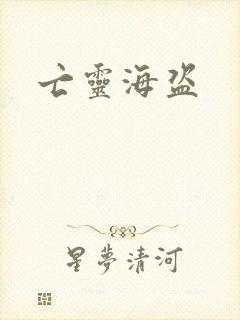 亡靈海盜
星夢清河